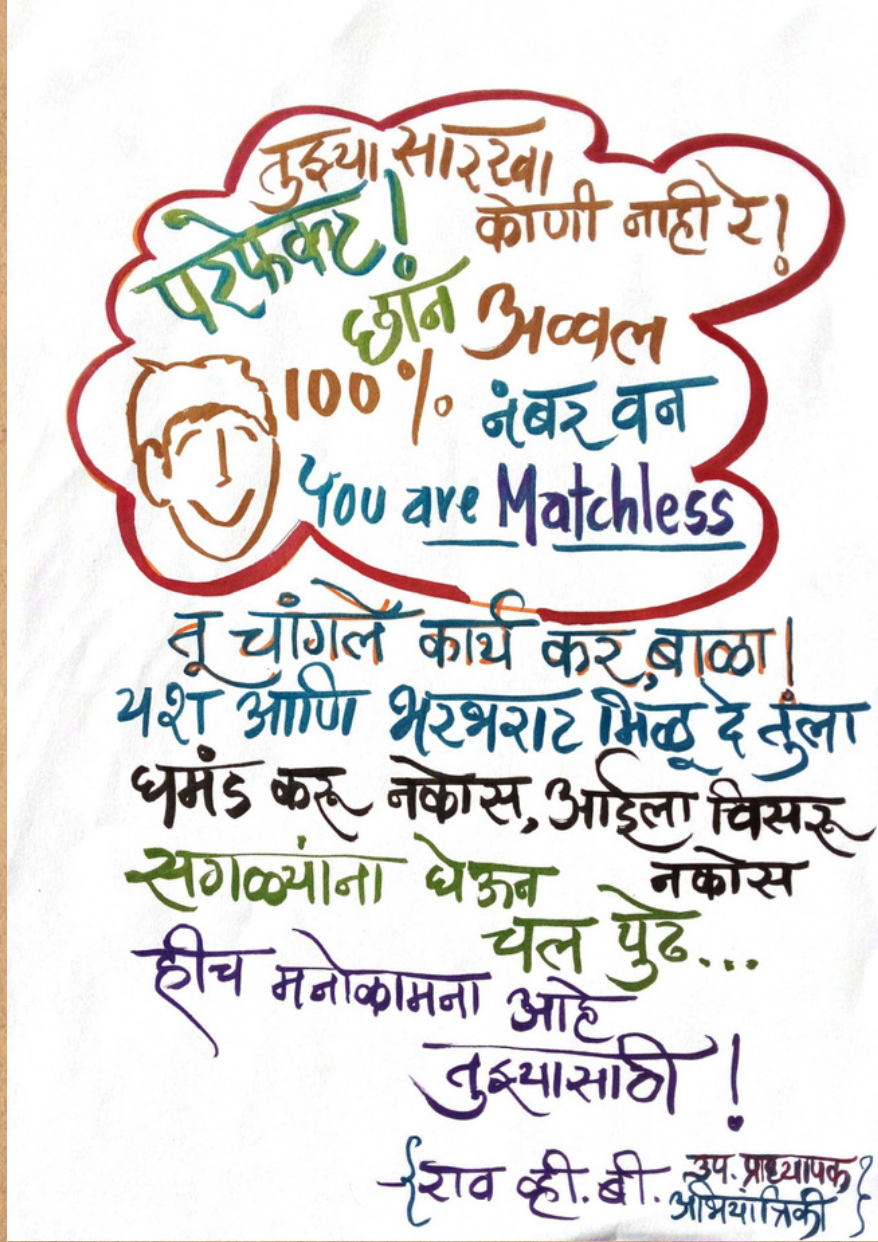 तुझ्या सारखा
कोणी नाही रे!
परफेक्ट!
छान अव्वल
100% नंबर वन
You are Matchless
तू चांगले कार्य कर, बाळा!
यश आणि भरभराट मिळू दे तुला
घमंड करू नकोस, आईला विसरू
नकोस
सगळ्यांना घेऊन
चल पुढे...
हीच मनोकामना आहे
तुझ्यासाठी!
{राव व्ही. बी. उप. प्राध्यापक
अभियांत्रिकी}